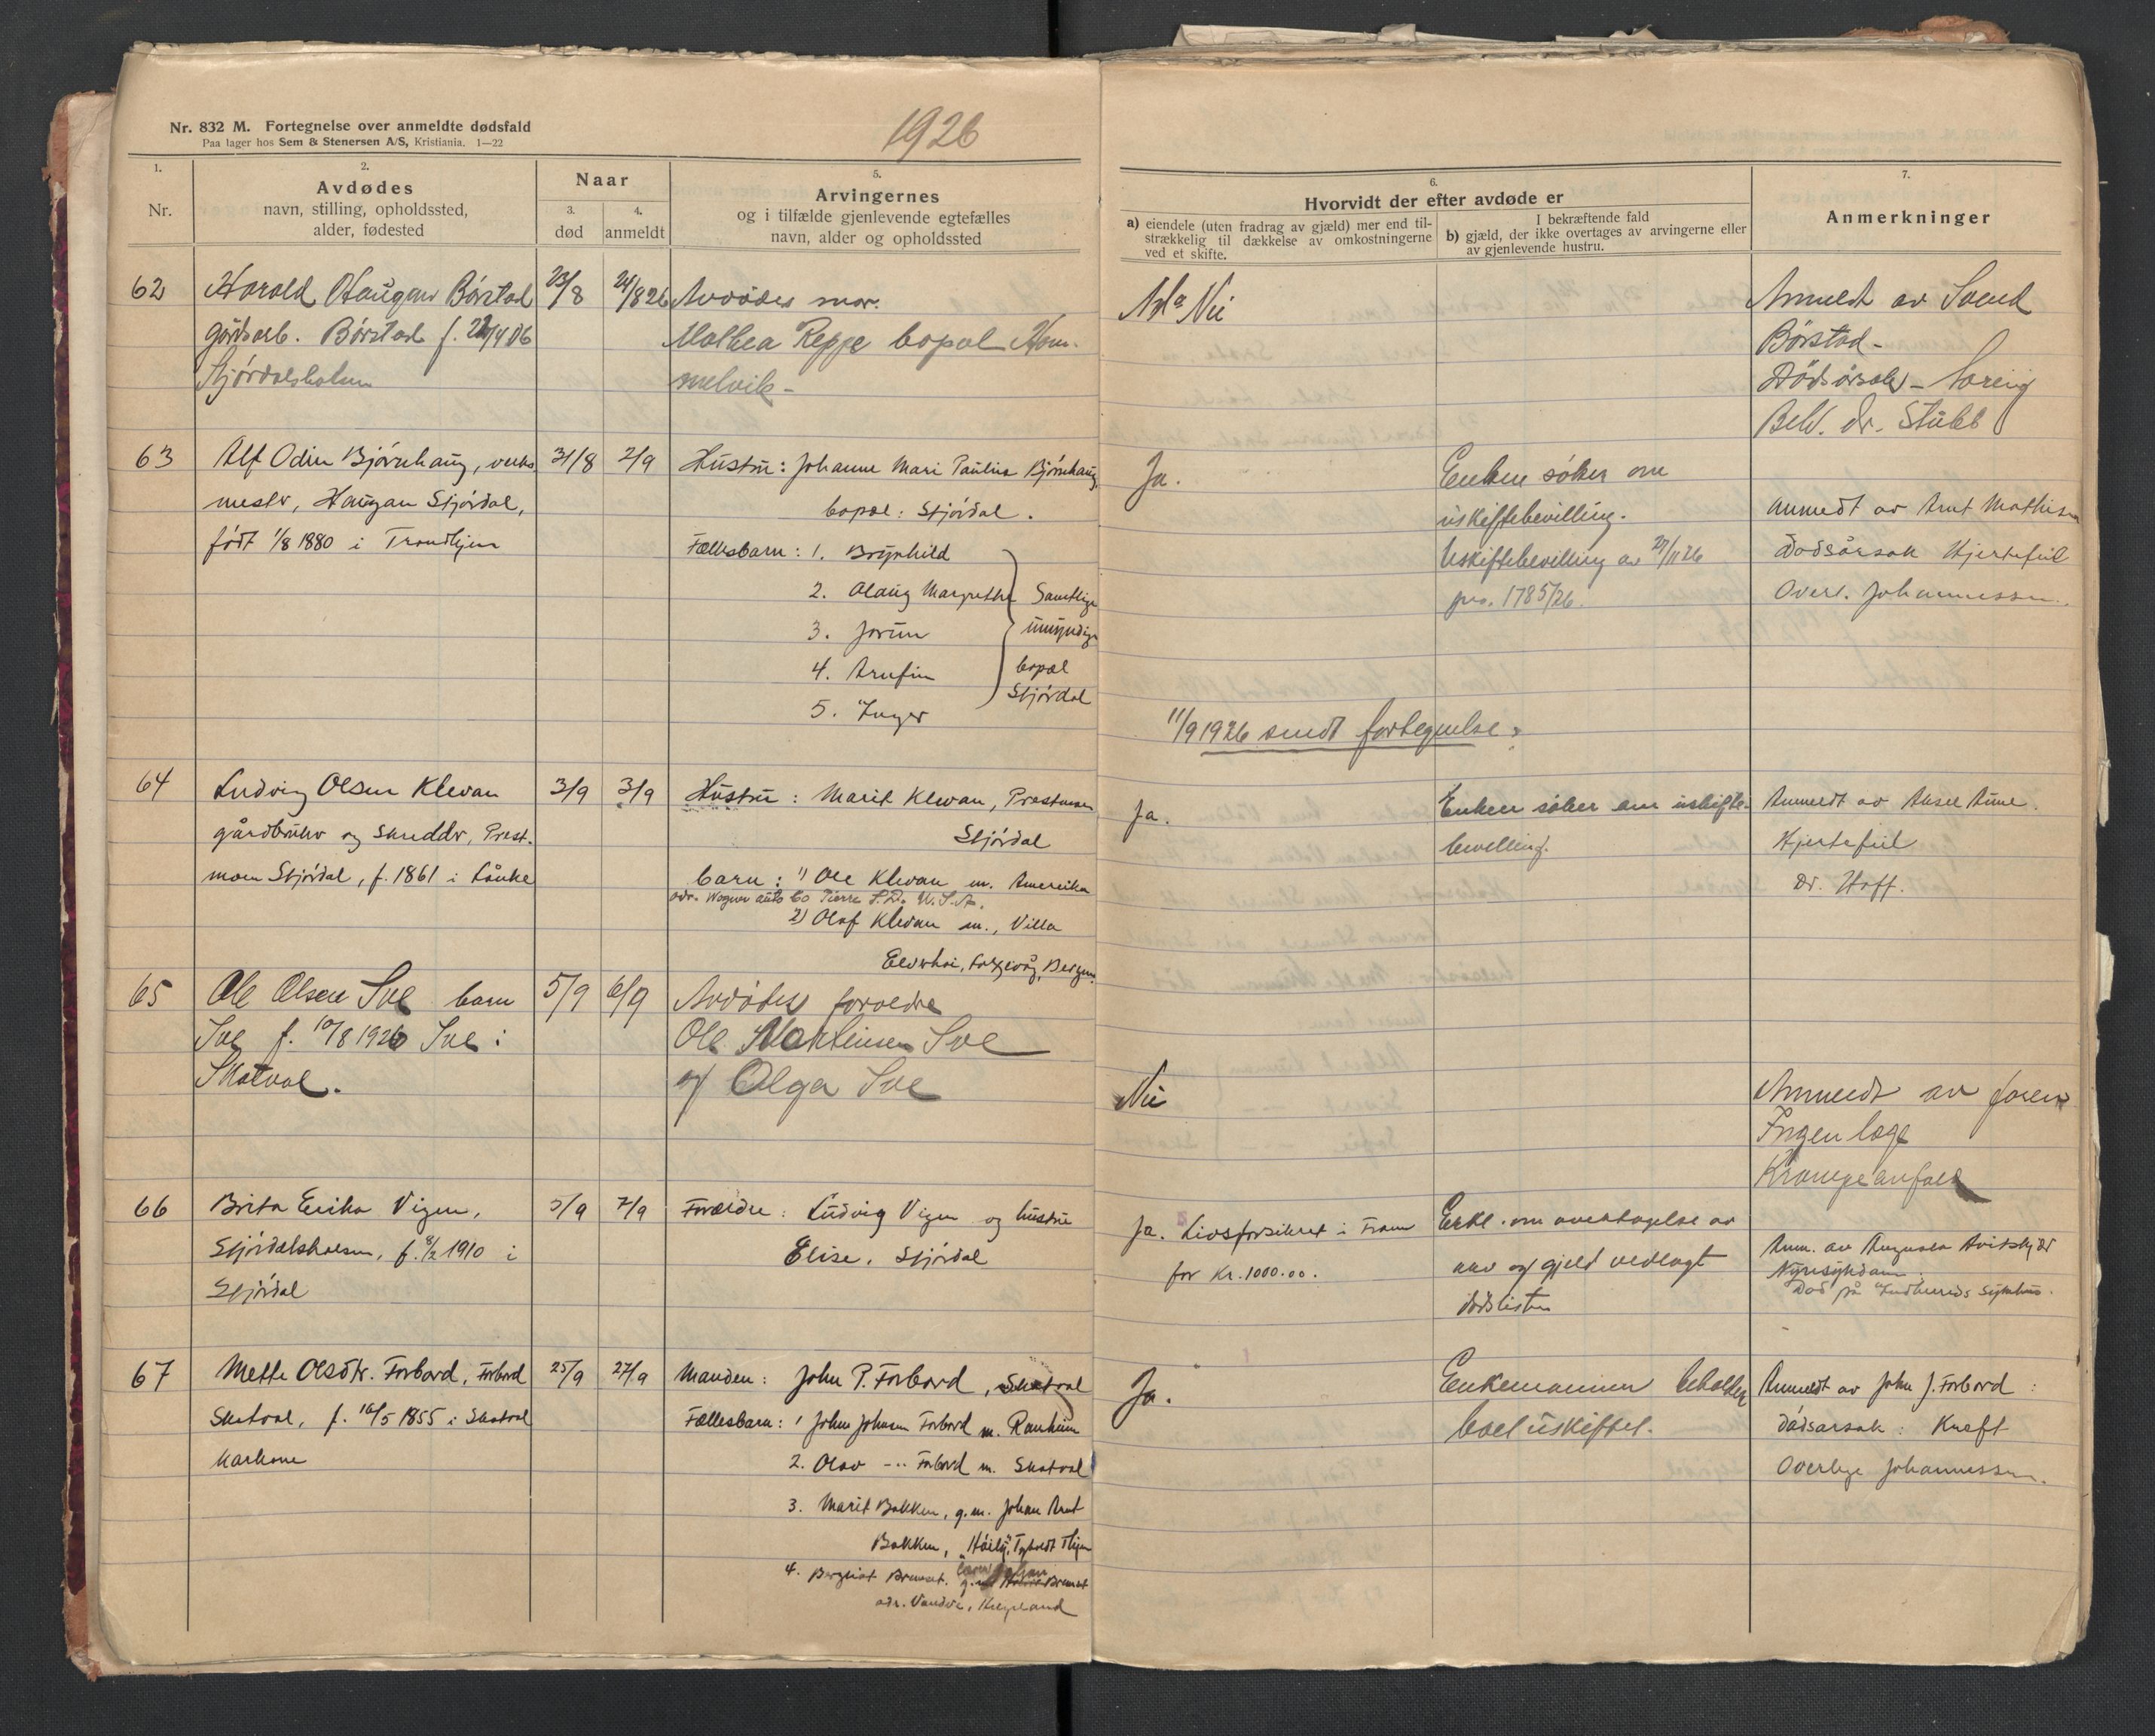 Nr. 832 M. Fortegnelse over anmeldte dødsfald
Paa lager hos Sem & Stenersen A/S, Kristiania. 1—22
1926
1.
Nr.
2.
Avdødes
navn, stilling, opholdssted,
alder, fødested
Naar
3.
død
4.
anmeldt
5.
Arvingernes
og i tilfælde gjenlevende egtefælles
navn, alder og opholdssted
6.
Hvorvidt der efter avdøde er
a) eiendele (uten fradrag av gjæld) mer end til-
strækkelig til dækkelse av omkostningerne
ved et skifte.
I bekræftende fald
b) gjæld, der ikke overtages av arvingerne eller
av gjenlevende hustru.
7.
Anmerkninger
62
Harald Haugan Børstad
gårdsarb. Børstad f. 22/4 06
Stjørdalshalsen
23/8
24/8 26
Avdødes mor.
Mathea Reppe bopæl Hom-
melvik -
Nei
Anmeldt av Svend
Børstad -
Dødsårsak -
Beh. dr. Stubb
63
Alf Odin Bjørnhaug, verks
mester, Haugan Stjørdal,
født 1/8 1880 i Trondhjem
31/8
2/9
Hustru: Johanne Mari Pauline Bjørnhaug,
bopæl: Stjørdal.
Fællesbarn: 1. Brynhild
2. Olaug Margrethe
3. Jorun
4. Arnfin
5. Inger
Samtlige
umyndige
bopæl
Stjørdal
Ja.
Enken søker om
uskiftebevilling.
Uskiftebevilling av 27/11 26
prs. 1785/26.
Anmeldt av Arnt Mathisen
Dødsårsak Hjertefeil
Overl. Johannessen.
11/9 1926 sendt fortegnelse.
64
Ludvig Olsen Klevan
gårdbruker og skredder, Prest-
moen Stjørdal, f. 1861 i Lånke
3/9
3/9
Hustru: Marit Klevan, Prestmoen
Stjørdal
barn: 1) Ole Klevan m. Amerika
adr. Wagner auto Co Pierre S.D. U.S.A.
2) Olaf Klevan m., Villa
Bergen.
Ja.
Enken søker om uskifte-
bevilling.
Anmeldt av Aksel Aune.
Hjertefeil
Dr. Hoff.
65
Ole Olsen Sve barn
Sve f. 10/8 1926 Sve i
Skatval.
5/9
6/9
Avdødes foreldre
Ole Martinsen Sve
og Olga Sve
Nei
Anmeldt av faren
Ingen læge
Krampeanfald
66
Brita Erika Vigen,
Stjørdalshalsen, f. 8/2 1910 i
Stjørdal
5/9
7/9
Forældre: Ludvig Vigen og hustru
Elise, Stjørdal
Ja. Livsforsikret i Fram
for Kr. 1000.00.
Erkl. om overtagelse av
arv og gjeld vedlagt
dødslisten
Anm. av Augusta
Nyresykdom.
Død på Innherreds Sykehus.
67
Mette Olsdtr. Forbord, Forbord
Skatval, f. 16/5 1855 i Skatval
Karkone
25/9
27/9
Manden: John P. Forbord, Skatval
Fællesbarn: 1 John Johnsen Forbord m. Ranheim
2. Olav -"- Forbord m. Skatval
3. Marit Bakken, g.m. Johan Arnt
Bakken, "Høili", Tyholdt Thjem
4. Bergitot Bremset. g. m. Bremset
adr. Vandve, Helgeland
Ja.
Enkemannen beholder
boet uskiftet.
Anmeldt av John J. Forbord:
Dødsarsak: Kreft
Overlege Johannessen.